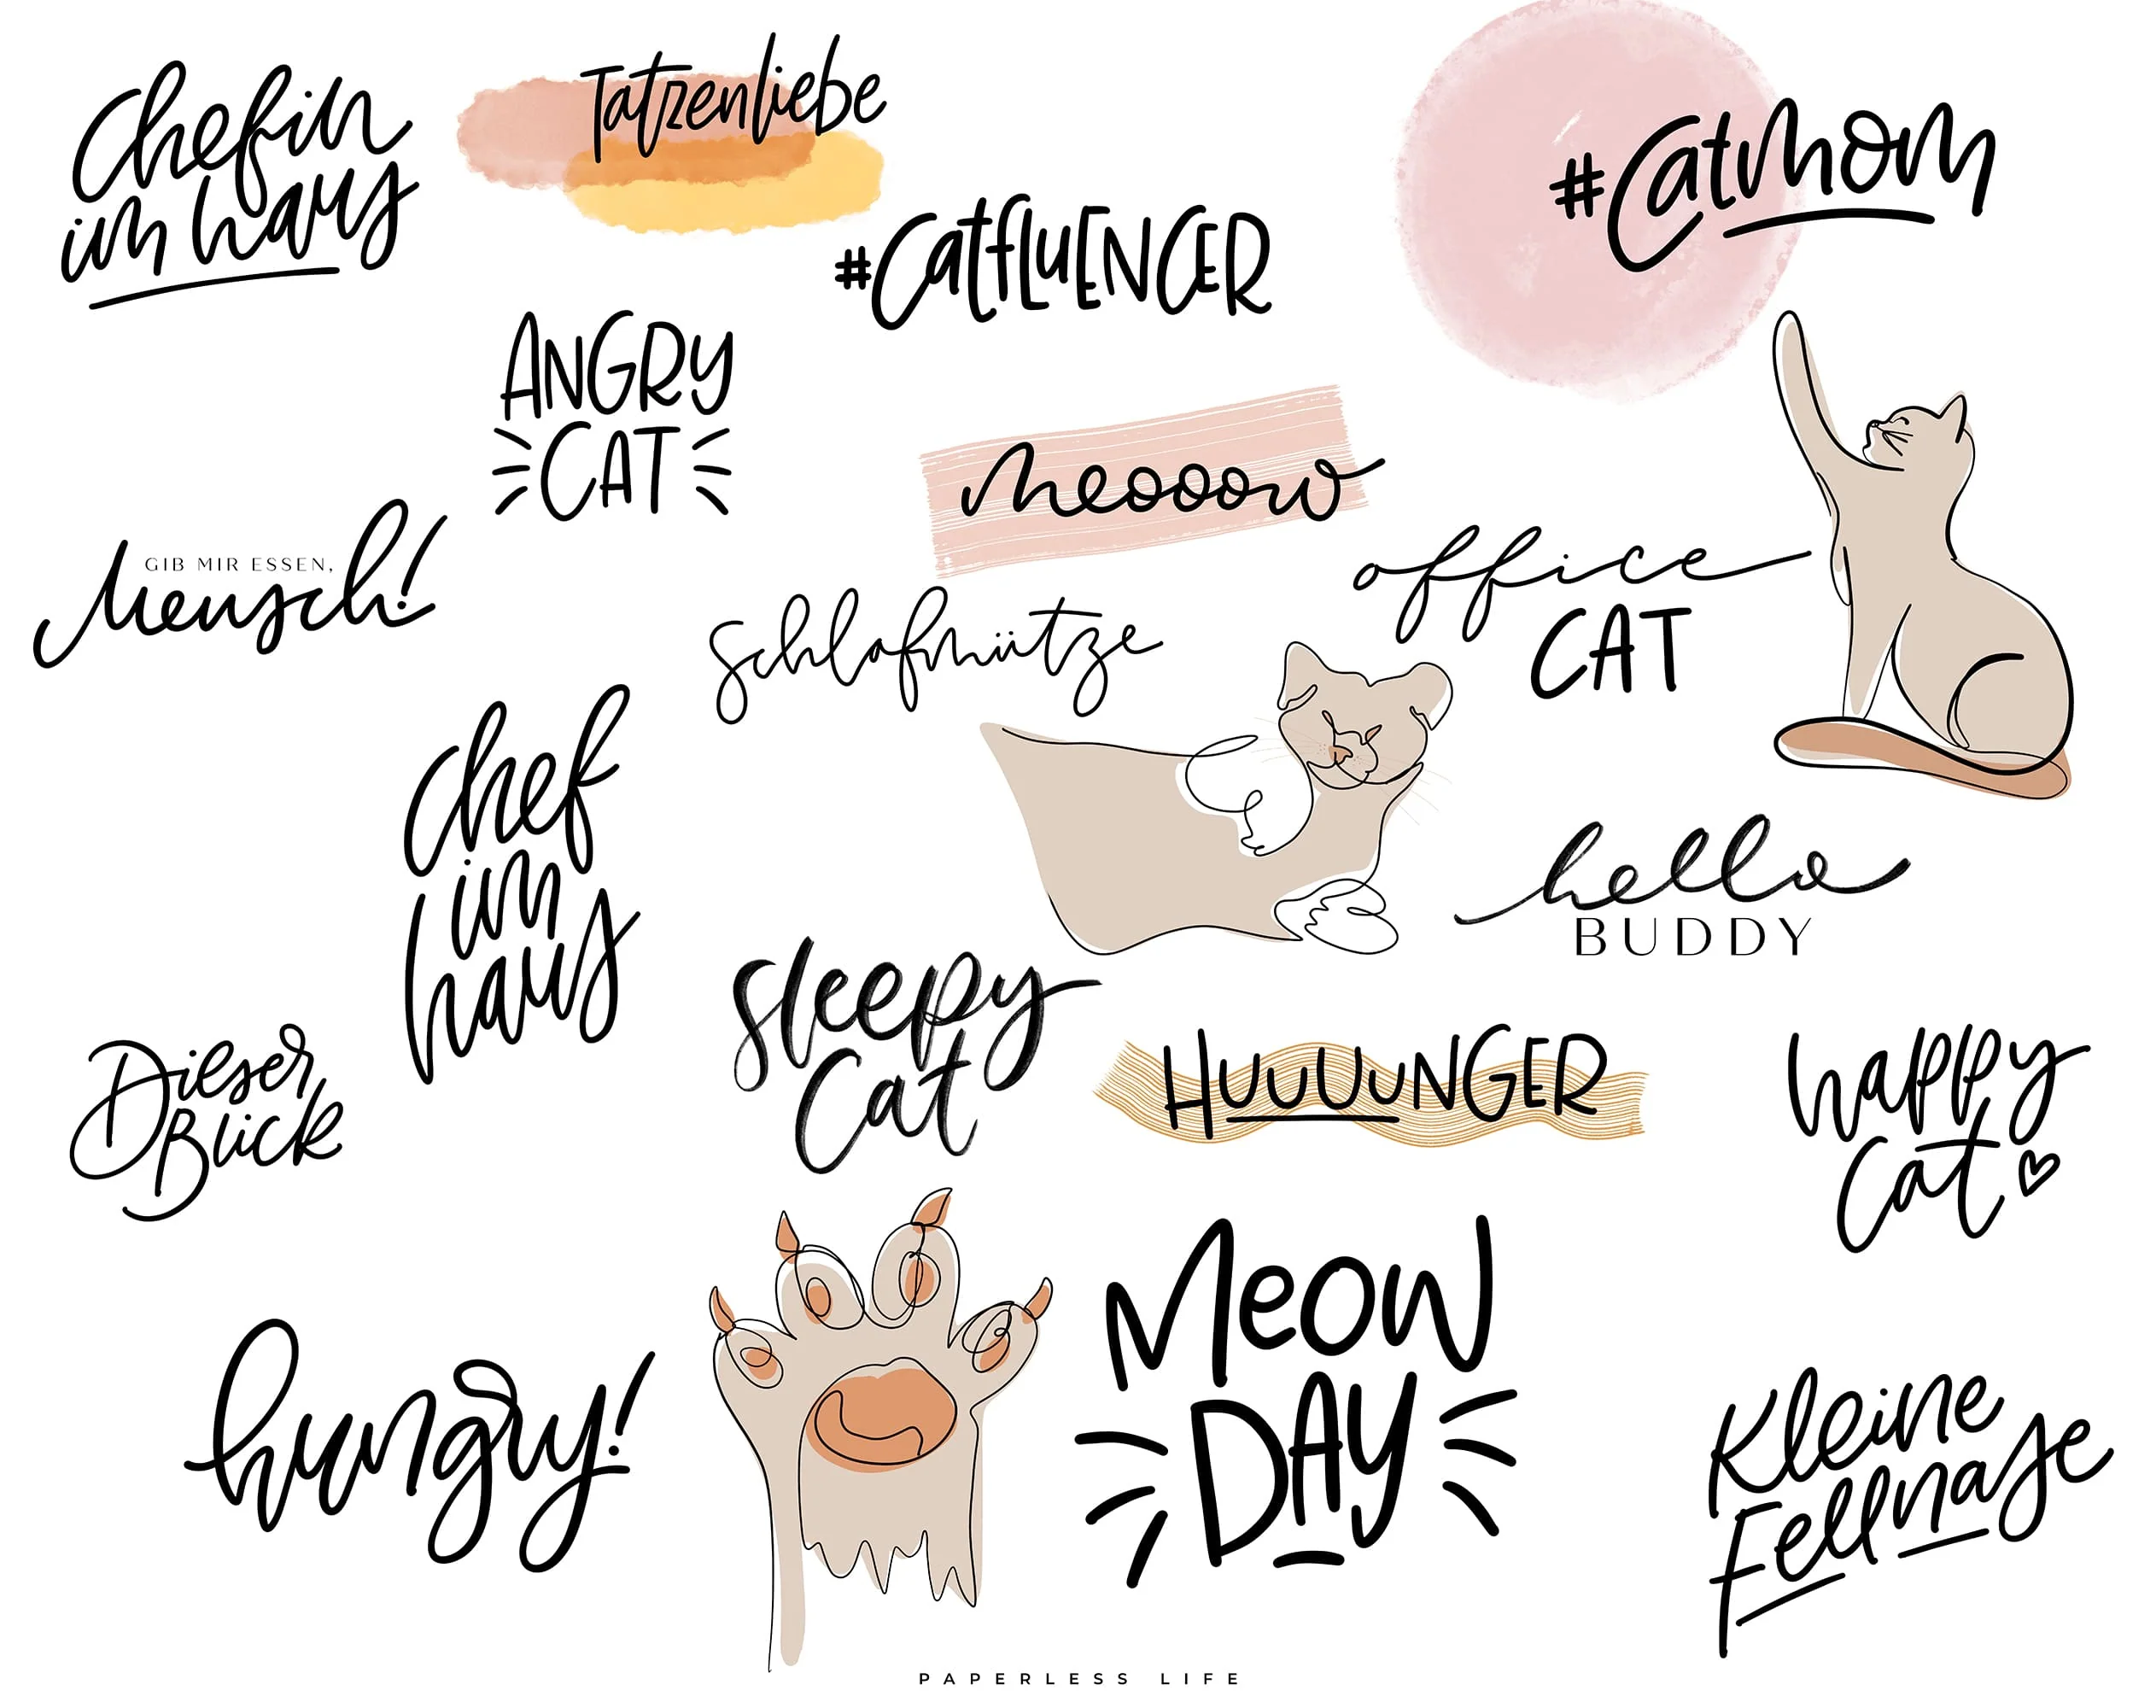 Chefin
im haus
Tatzenliebe
#Catmom
#CatfluENCER
ANGRY
CAT
meooow
GIB MIR ESSEN,
Mensch!
office
CAT
schlafmütze
chef
im
haus
hello
BUDDY
sleepy
Cat
Dieser
Blick
HUUUUNGER
happy
cat
MeoW
DAY
hungry!
Kleine
Fellnase
PAPERLESS LIFE